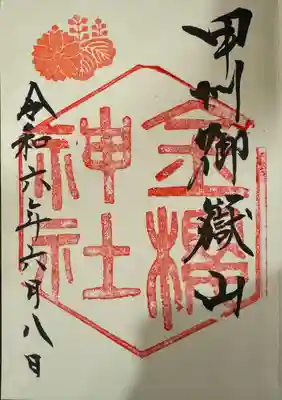 甲州御嶽山
金櫻神社
令和六年六月八日